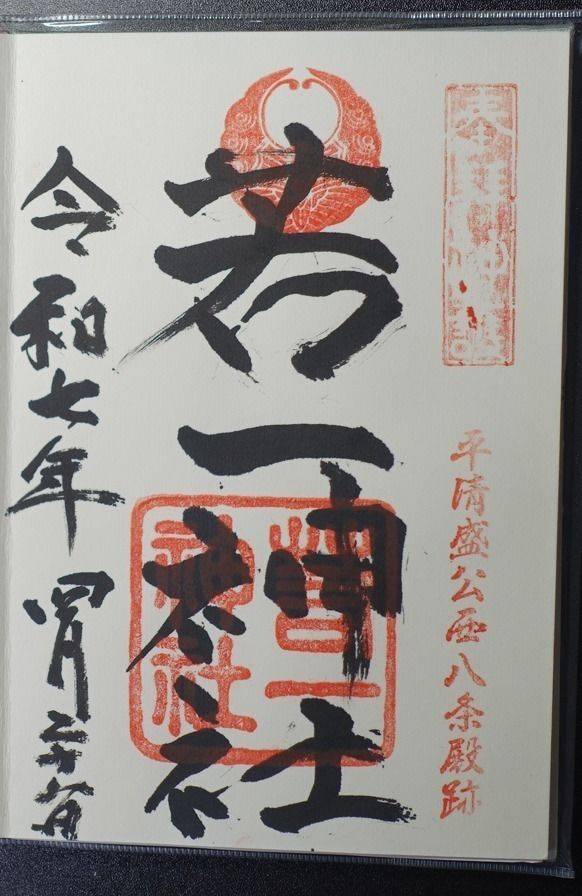 平清盛公西八条殿跡
若一神社
若一
神社
令和七年四月